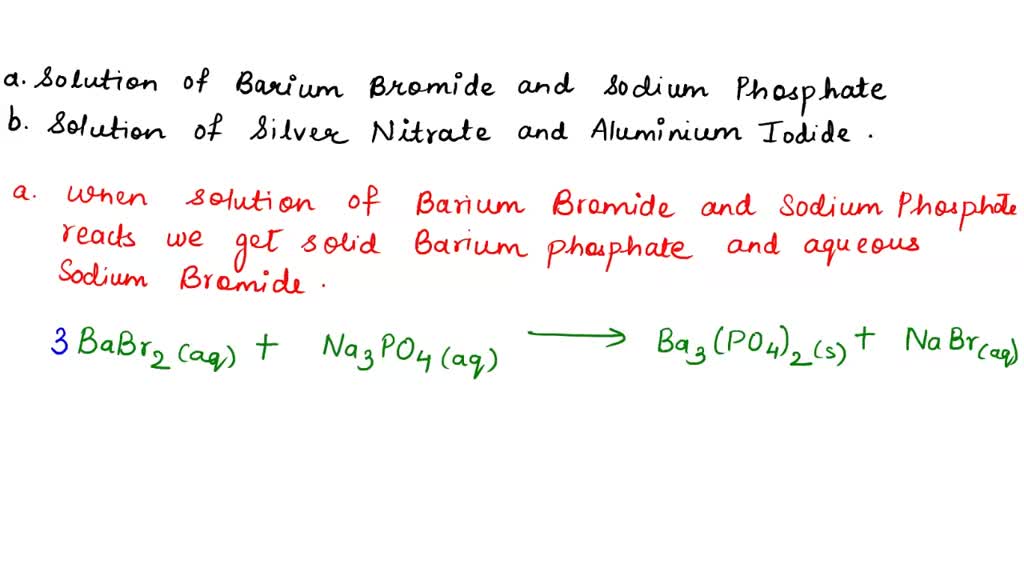 a. Solution of Barium Bromide and Sodium Phosphate
b. Solution of Silver Nitrate and Aluminium Iodide.
a. When solution of Barium Bromide and Sodium Phosphate
reacts we get solid Barium phosphate and aqueous
Sodium Bromide.
3 BaBr₂ (aq) + Na₃PO₄ (aq) ⟶ Ba₃(PO₄)₂ (s) + NaBr (aq)